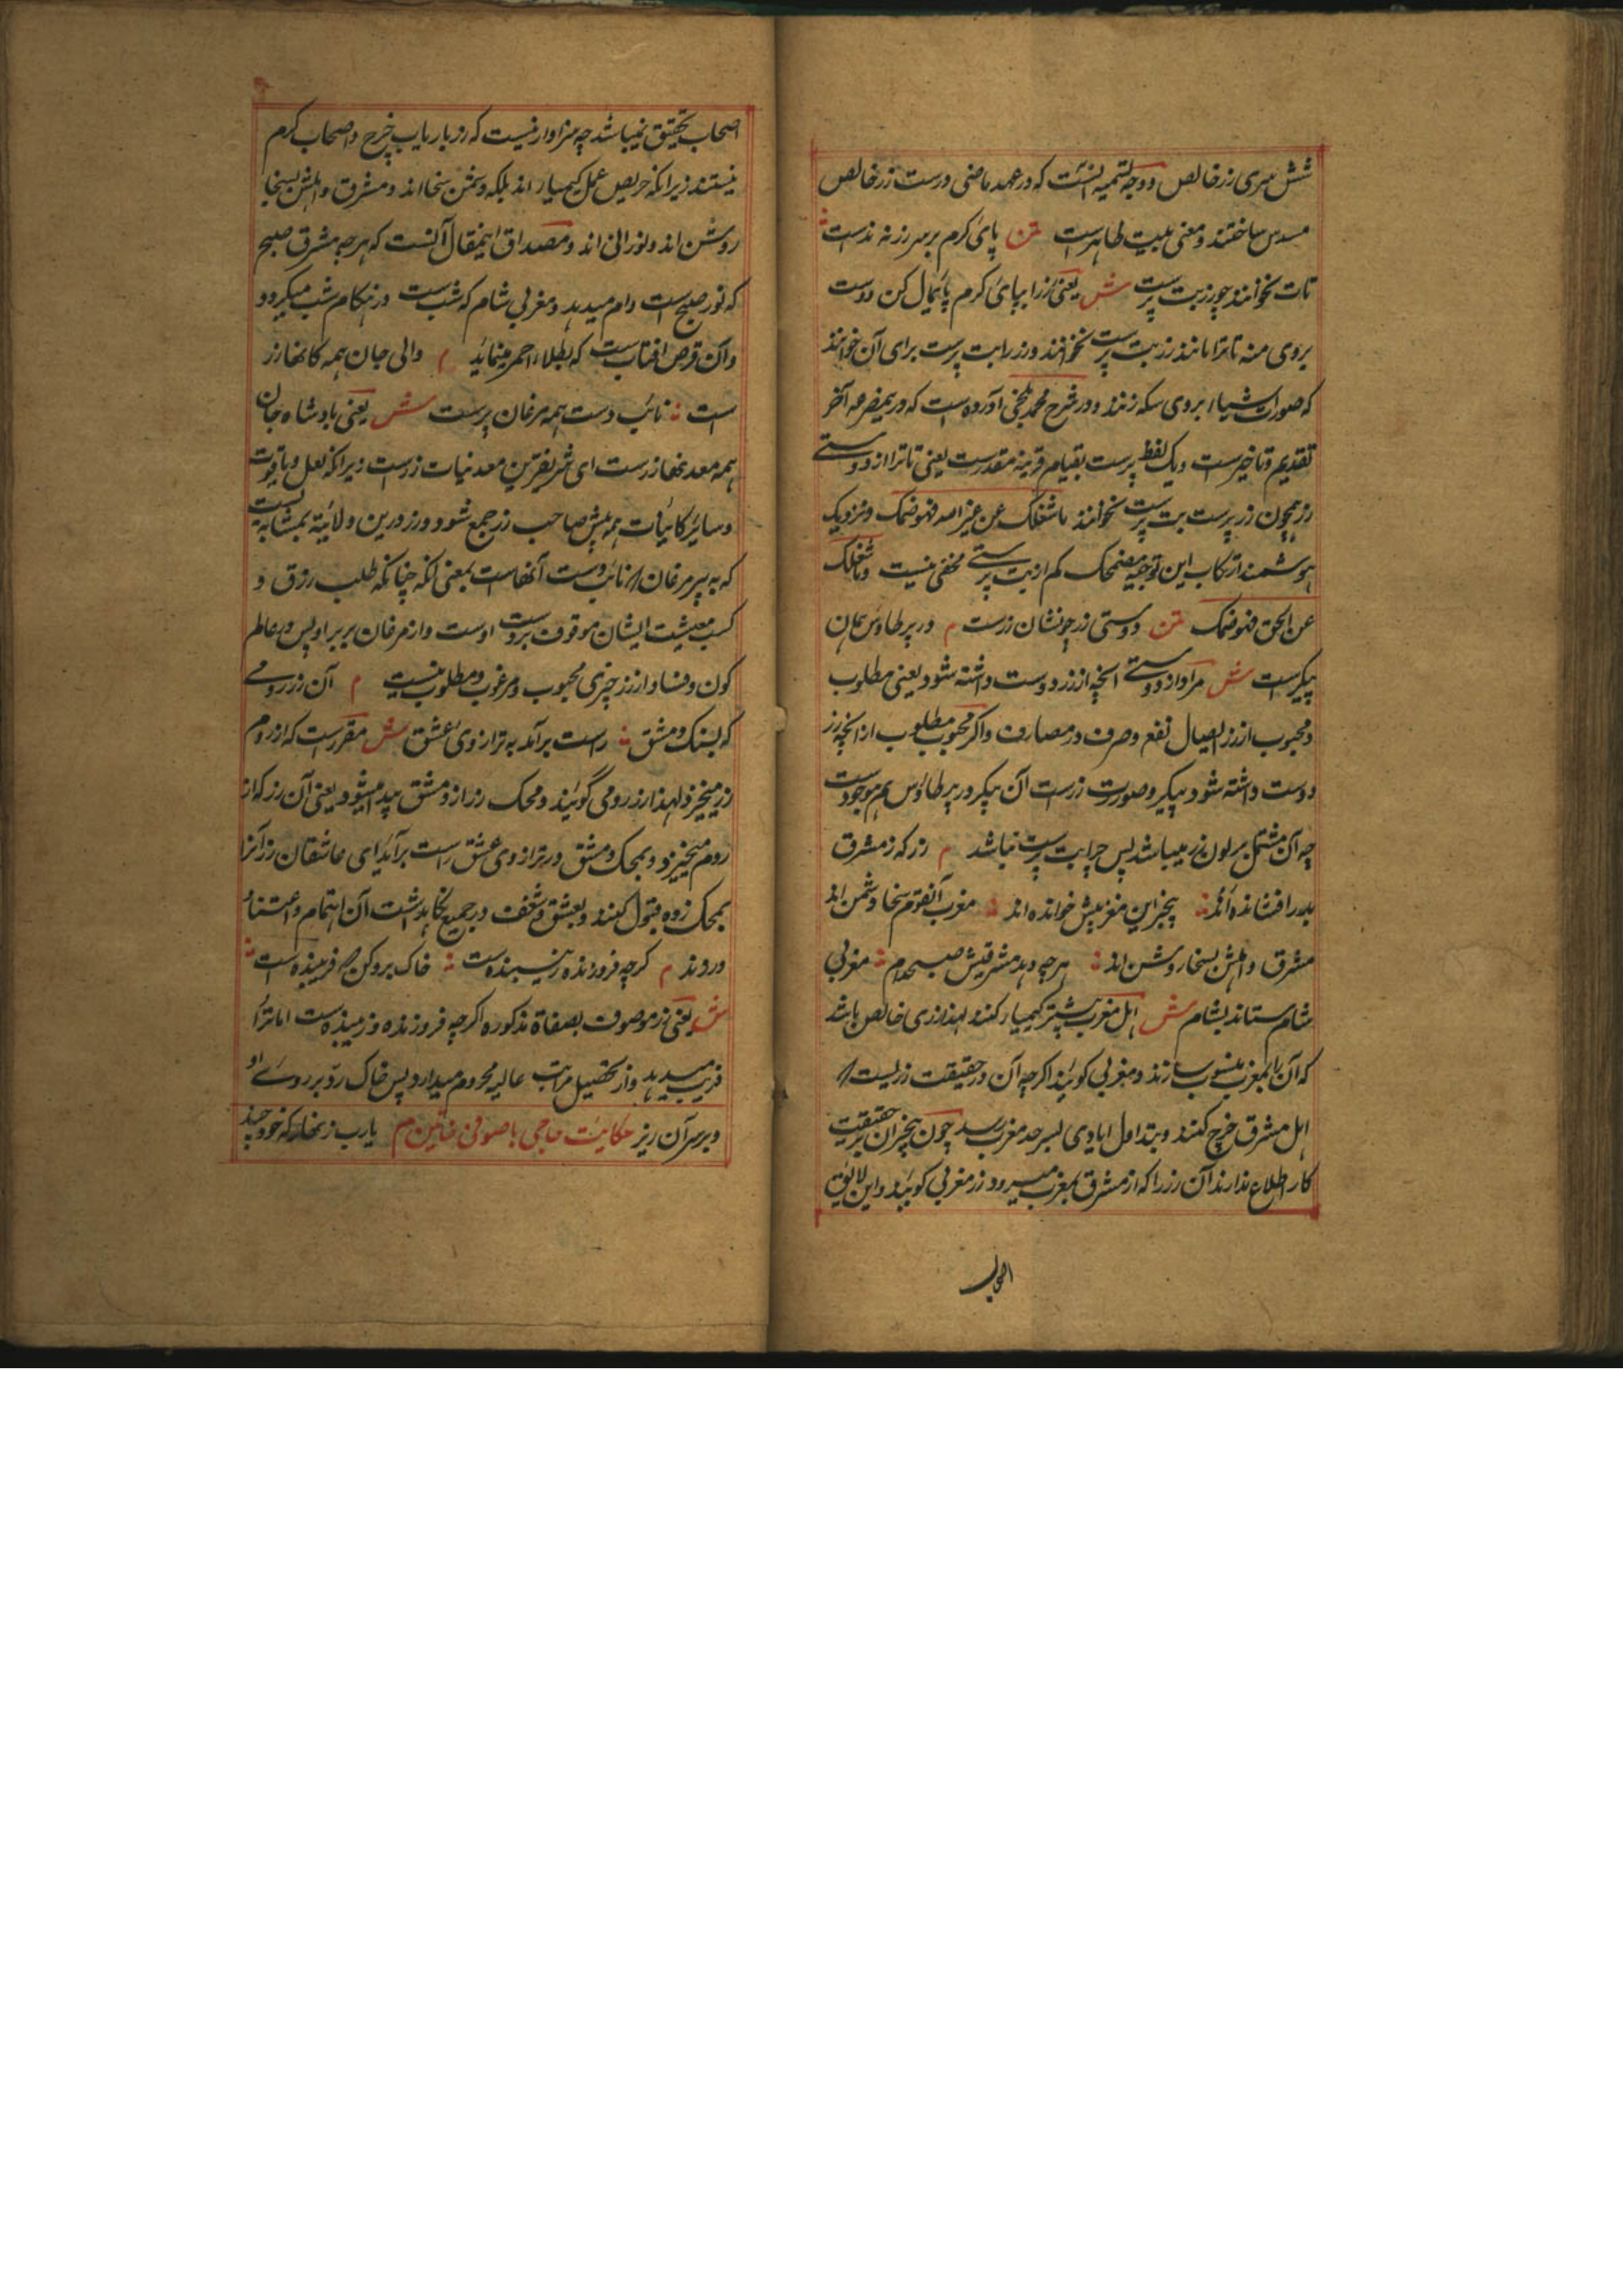 شش سری زر خالص و وجه تسمیه اینست که در عهد ماضی درست زر خالص
مسدس ساختند و معنی بیت ظاهرست متن پای کرم بر سر زر نه ندست
تات نخوانند چو زر بت پرست ش یعنی زر را بپای کرم پائمال کن دوست
بروی منه تا ترا مانند زر بت پرست نخوانند و زر را بت پرست برای آن خوانند
که صورت اشیاء بروی سکه زنند و در شرح محمد بلخی آورده است که در مصرعه آخر
تقدیم و تاخیرست و یک لفظ پرست بقیام قرینه مقدرست یعنی تا ترا از دوستی
زر همچون زر پرست بت پرست نخوانند ما شغلک عن غیر احد فهو ضمک و نزدیک
هوشمند ارتکاب این توجیه مضحک کم از بت پرستی مخفی نیست و ما شغلک
عن الحق فهو ضمک متن دوستی زر چو نشان زرست م در پر طاوس همان
پیکرست ش مراد از دوستی آنچه از زر دوست داشته شود یعنی مطلوب
و محبوب از زر ایصال نفع و صرف در مصارف و اگر محبوب مطلوب از آنچه زر
دوست داشته شود پیکر و صورت زرست آن پیکر در پر طاوس هم موجودست
چه آن مشتمل بر لون زر میباشد پس چرا بت پرست نباشد م زر که ز مشرق
بدر افشانده اند بیخبر این مغربیش خوانده اند مغرب آنقوم سخا دشمن اند
مشرق و اهلش بسخا روشن اند هرچه دهد مشرقیش صبحدم مغربی
شام ستاند بشام ش اهل مغرب بیشتر کیمیا کنند لهذا زری خالص باشد
که آن را بمغرب منسوب سازند و مغربی گویند اگرچه آن در حقیقت زریست که
اهل مشرق خرچ کنند و بتداول ایادی بسرحد مغرب رسد چون بیخبران بر حقیقت
کار اطلاع ندارند آن زر را که از مشرق بمغرب میرود زر مغربی گویند و این لایق
اصحاب
اصحاب تحقیق نمیباشد چه سزاوار نیست که زر بارباب خرچ و اصحاب کرم
نیستند زیرا که حریص عمل کیمیا اند بلکه دشمن سخا اند و مشرق و اهلش بسخا
روشن اند و نورانی اند و مصداق اینمقال آنست که هرچه مشرق صبح
که نور صبح است وام میدهد و مغربی شام که شب ست در هنگام شب میگیرد و
و آن قرص افتاب ست که بطلاء احمر مینماید م والی جان همه کانها زر
است نائب دست همه مرغان پرست ش یعنی بادشاه جان
همه معدنها زرست ای شریفترین معدنیات زرست زیرا که لعل و یاقوت
و سائر کانیات همه پیش صاحب زر جمع شود و زر درین ولائیة بمشابه دست
که به پر مرغان نائب دست آنهاست بمعنی آنکه چنانکه طلب رزق و
کسب معیشت ایشان موقوف بر دست اوست و از مرغان بر پر او پس در عالم
کون و فساد از زر چیزی محبوب و مرغوب و مطلوب نیست م آن زر رومی
که بسنک دمشق راست برآمد به ترازوی عشق ش مقررست که از روم
زر میخیزد لهذا زر رومی گویند و محک زر از دمشق پیدا میشود یعنی آن زر که از
روم میخیزد و بمحک دمشق در ترازوی عشق راست برآید ای عاشقان زر آنرا
بمحک زده قبول کنند و بعشق و شغف در جمیع نگاهداشت آن اهتمام و اعتناء
ورزند م گرچه فروزنده و زیبنده ست خاک برو کن که فریبنده است
ش یعنی زر موصوف بصفاة مذکوره اگرچه فروزنده و زیبنده ست اما ترا
فریب میدهد و از تحصیل مراتب عالیه محروم میدارد پس خاک رد بر روی او
و بر سر آن ریز حکایت حاجی با صوفی خائین م یارب زنهار که خود چند